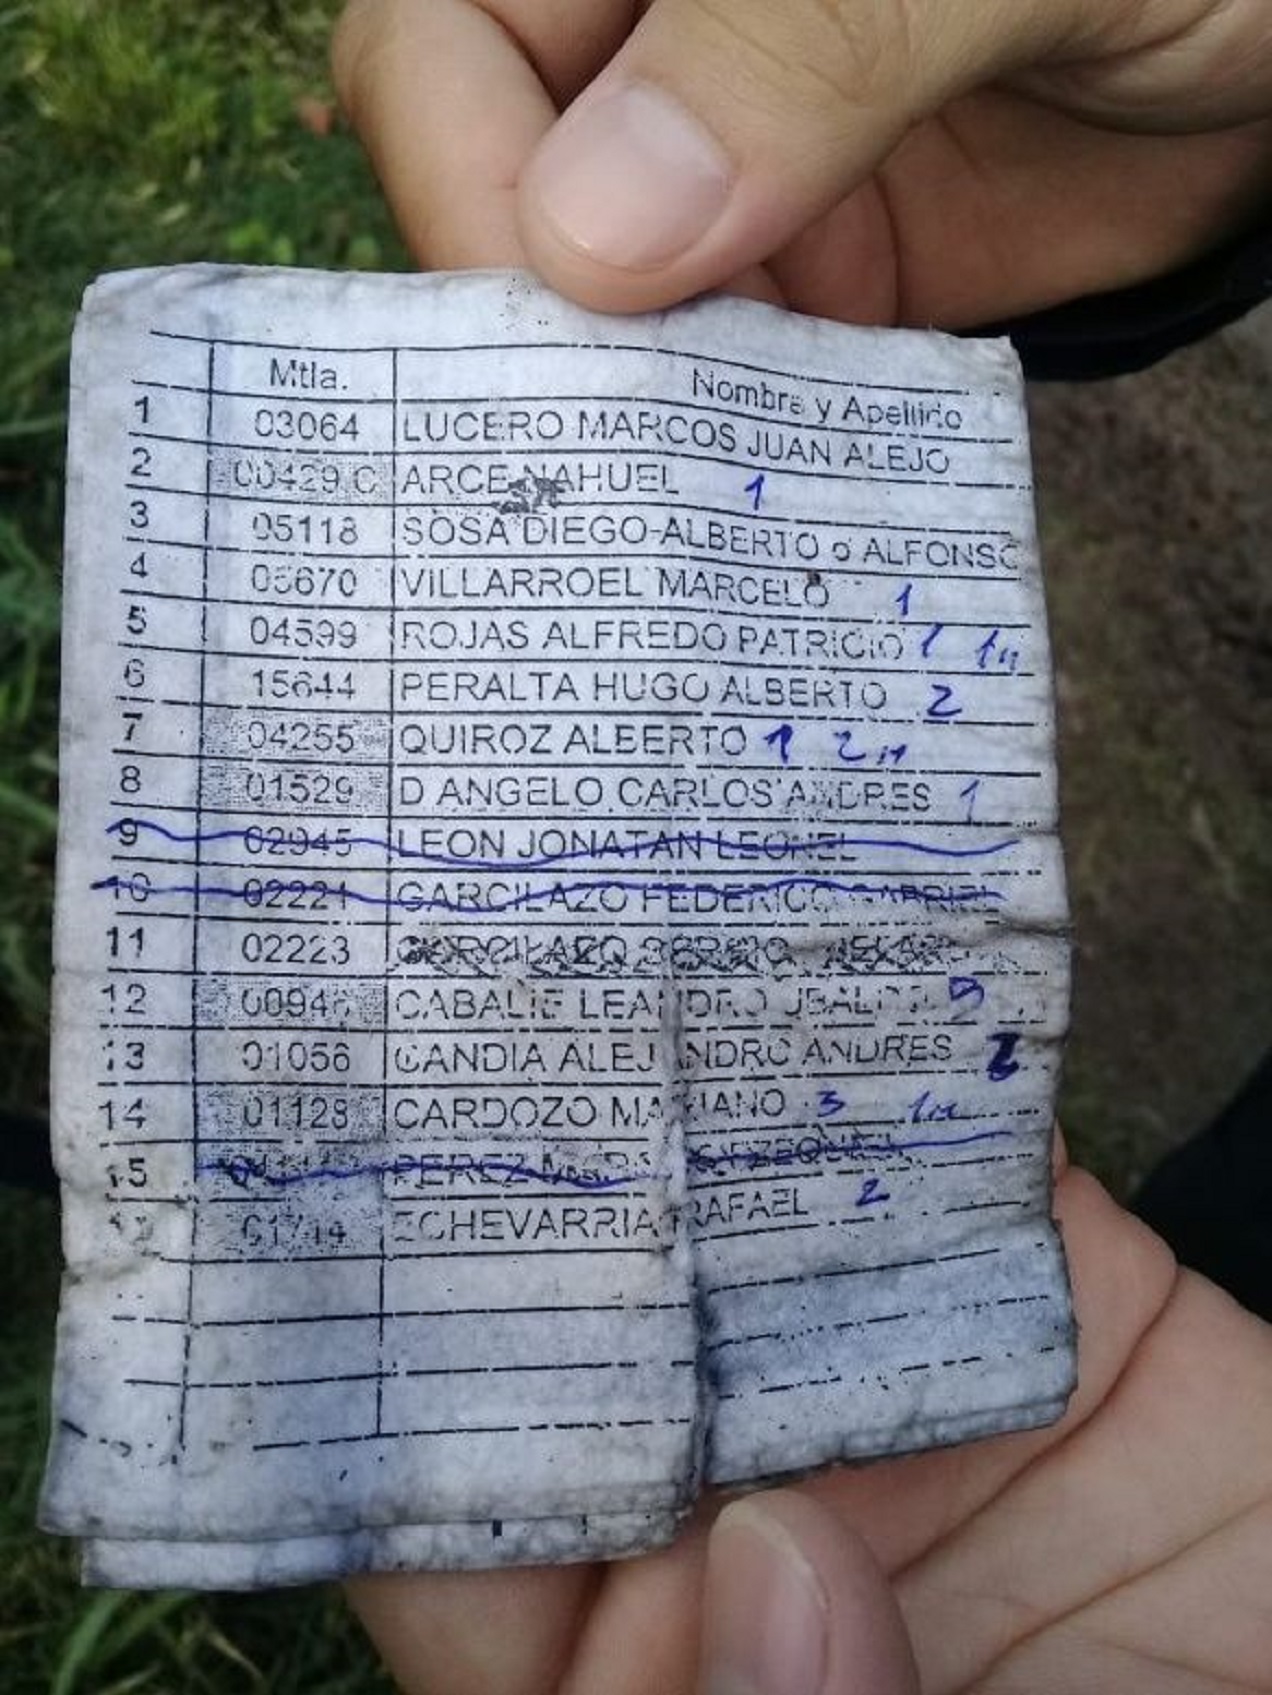 Mtla. Nombre y Apellido
1 03064 LUCERO MARCOS JUAN ALEJO
2 00429 C ARCE NAHUEL 1
3 05118 SOSA DIEGO ALBERTO o ALFONSO
4 05670 VILLARROEL MARCELO 1
5 04599 ROJAS ALFREDO PATRICIO 1
6 15644 PERALTA HUGO ALBERTO 2
7 04255 QUIROZ ALBERTO 1 2
8 01529 D ANGELO CARLOS ANDRES 1
9 02945 LEON JONATAN LEONEL
10 02221 GARCILAZO FEDERICO GABRIEL
11 02223 GARCILAZO SERGIO
12 CABALIE LEANDRO UBALDO
13 01056 CANDIA ALEJANDRO ANDRES 2
14 01128 CARDOZO MARIANO 3
15 PEREZ EZEQUIEL
ECHEVARRIA RAFAEL 2